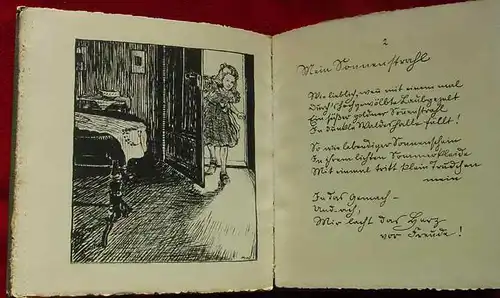 2
Mein Sonnenstrahl
Wie lieblich, wenn mit einem mal
Durch's hochgewölbte Laubgezelt
Ein süßer goldner Sonnenstrahl
In dunkle Waldeshalle fällt!
So wie lebendiger Sonnenschein
In ihrem lichten Sommerkleide
Mit einmal tritt klein Traudchen
mein
In das Gemach –
Und ach,
Mir lacht das Herz
vor Freude!